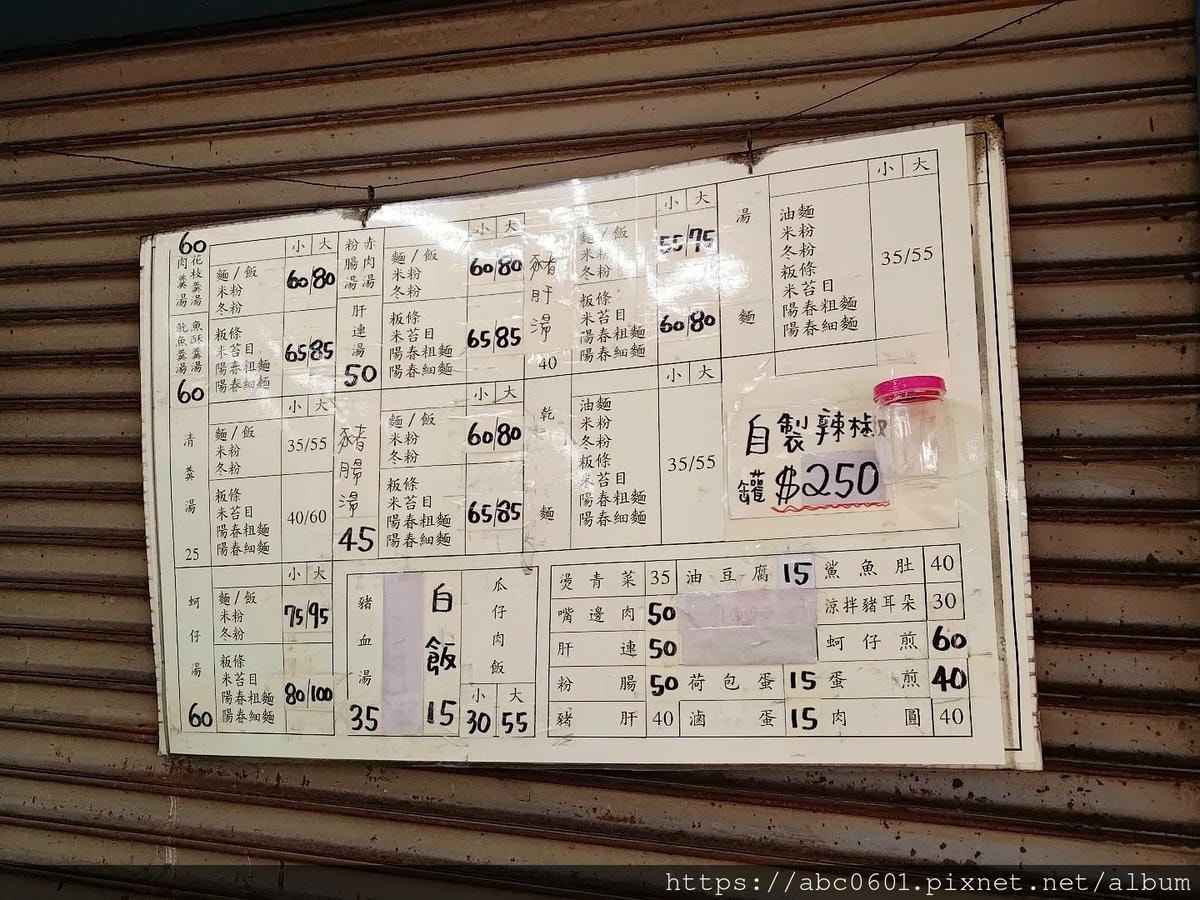 60
花枝羹湯
肉羹湯
魚酥羹湯
魷魚羹湯
60
小 大
麵/飯
米粉
冬粉
60/80
板條
米苔目
陽春粗麵
陽春細麵
65/85
赤肉湯
粉腸湯
肝連湯
50
麵/飯
米粉
冬粉
小 大
60/80
板條
米苔目
陽春粗麵
陽春細麵
65/85
豬肝湯
40
麵/飯
米粉
冬粉
小 大
55/75
板條
米苔目
陽春粗麵
陽春細麵
60/80
湯麵
油麵
米粉
冬粉
粄條
米苔目
陽春粗麵
陽春細麵
小 大
35/55
清羹湯
25
小 大
麵/飯
米粉
冬粉
35/55
粄條
米苔目
陽春粗麵
陽春細麵
40/60
豬腸湯
45
小 大
麵/飯
米粉
冬粉
60/80
粄條
米苔目
陽春粗麵
陽春細麵
65/85
乾麵
油麵
米粉
冬粉
粄條
米苔目
陽春粗麵
陽春細麵
小 大
35/55
自製辣椒
罐$250
蚵仔湯
60
小 大
麵/飯
米粉
冬粉
75/95
粄條
米苔目
陽春粗麵
陽春細麵
80/100
豬血湯
35
白飯
15
瓜仔肉飯
小 大
30 55
燙青菜 35 油豆腐 15 鯊魚肚 40
嘴邊肉 50 涼拌豬耳朵 30
肝連 50 蚵仔煎 60
粉腸 50 荷包蛋 15 蛋煎 40
豬肝 40 滷蛋 15 肉圓 40
https://abc0601.pixnet.net/album